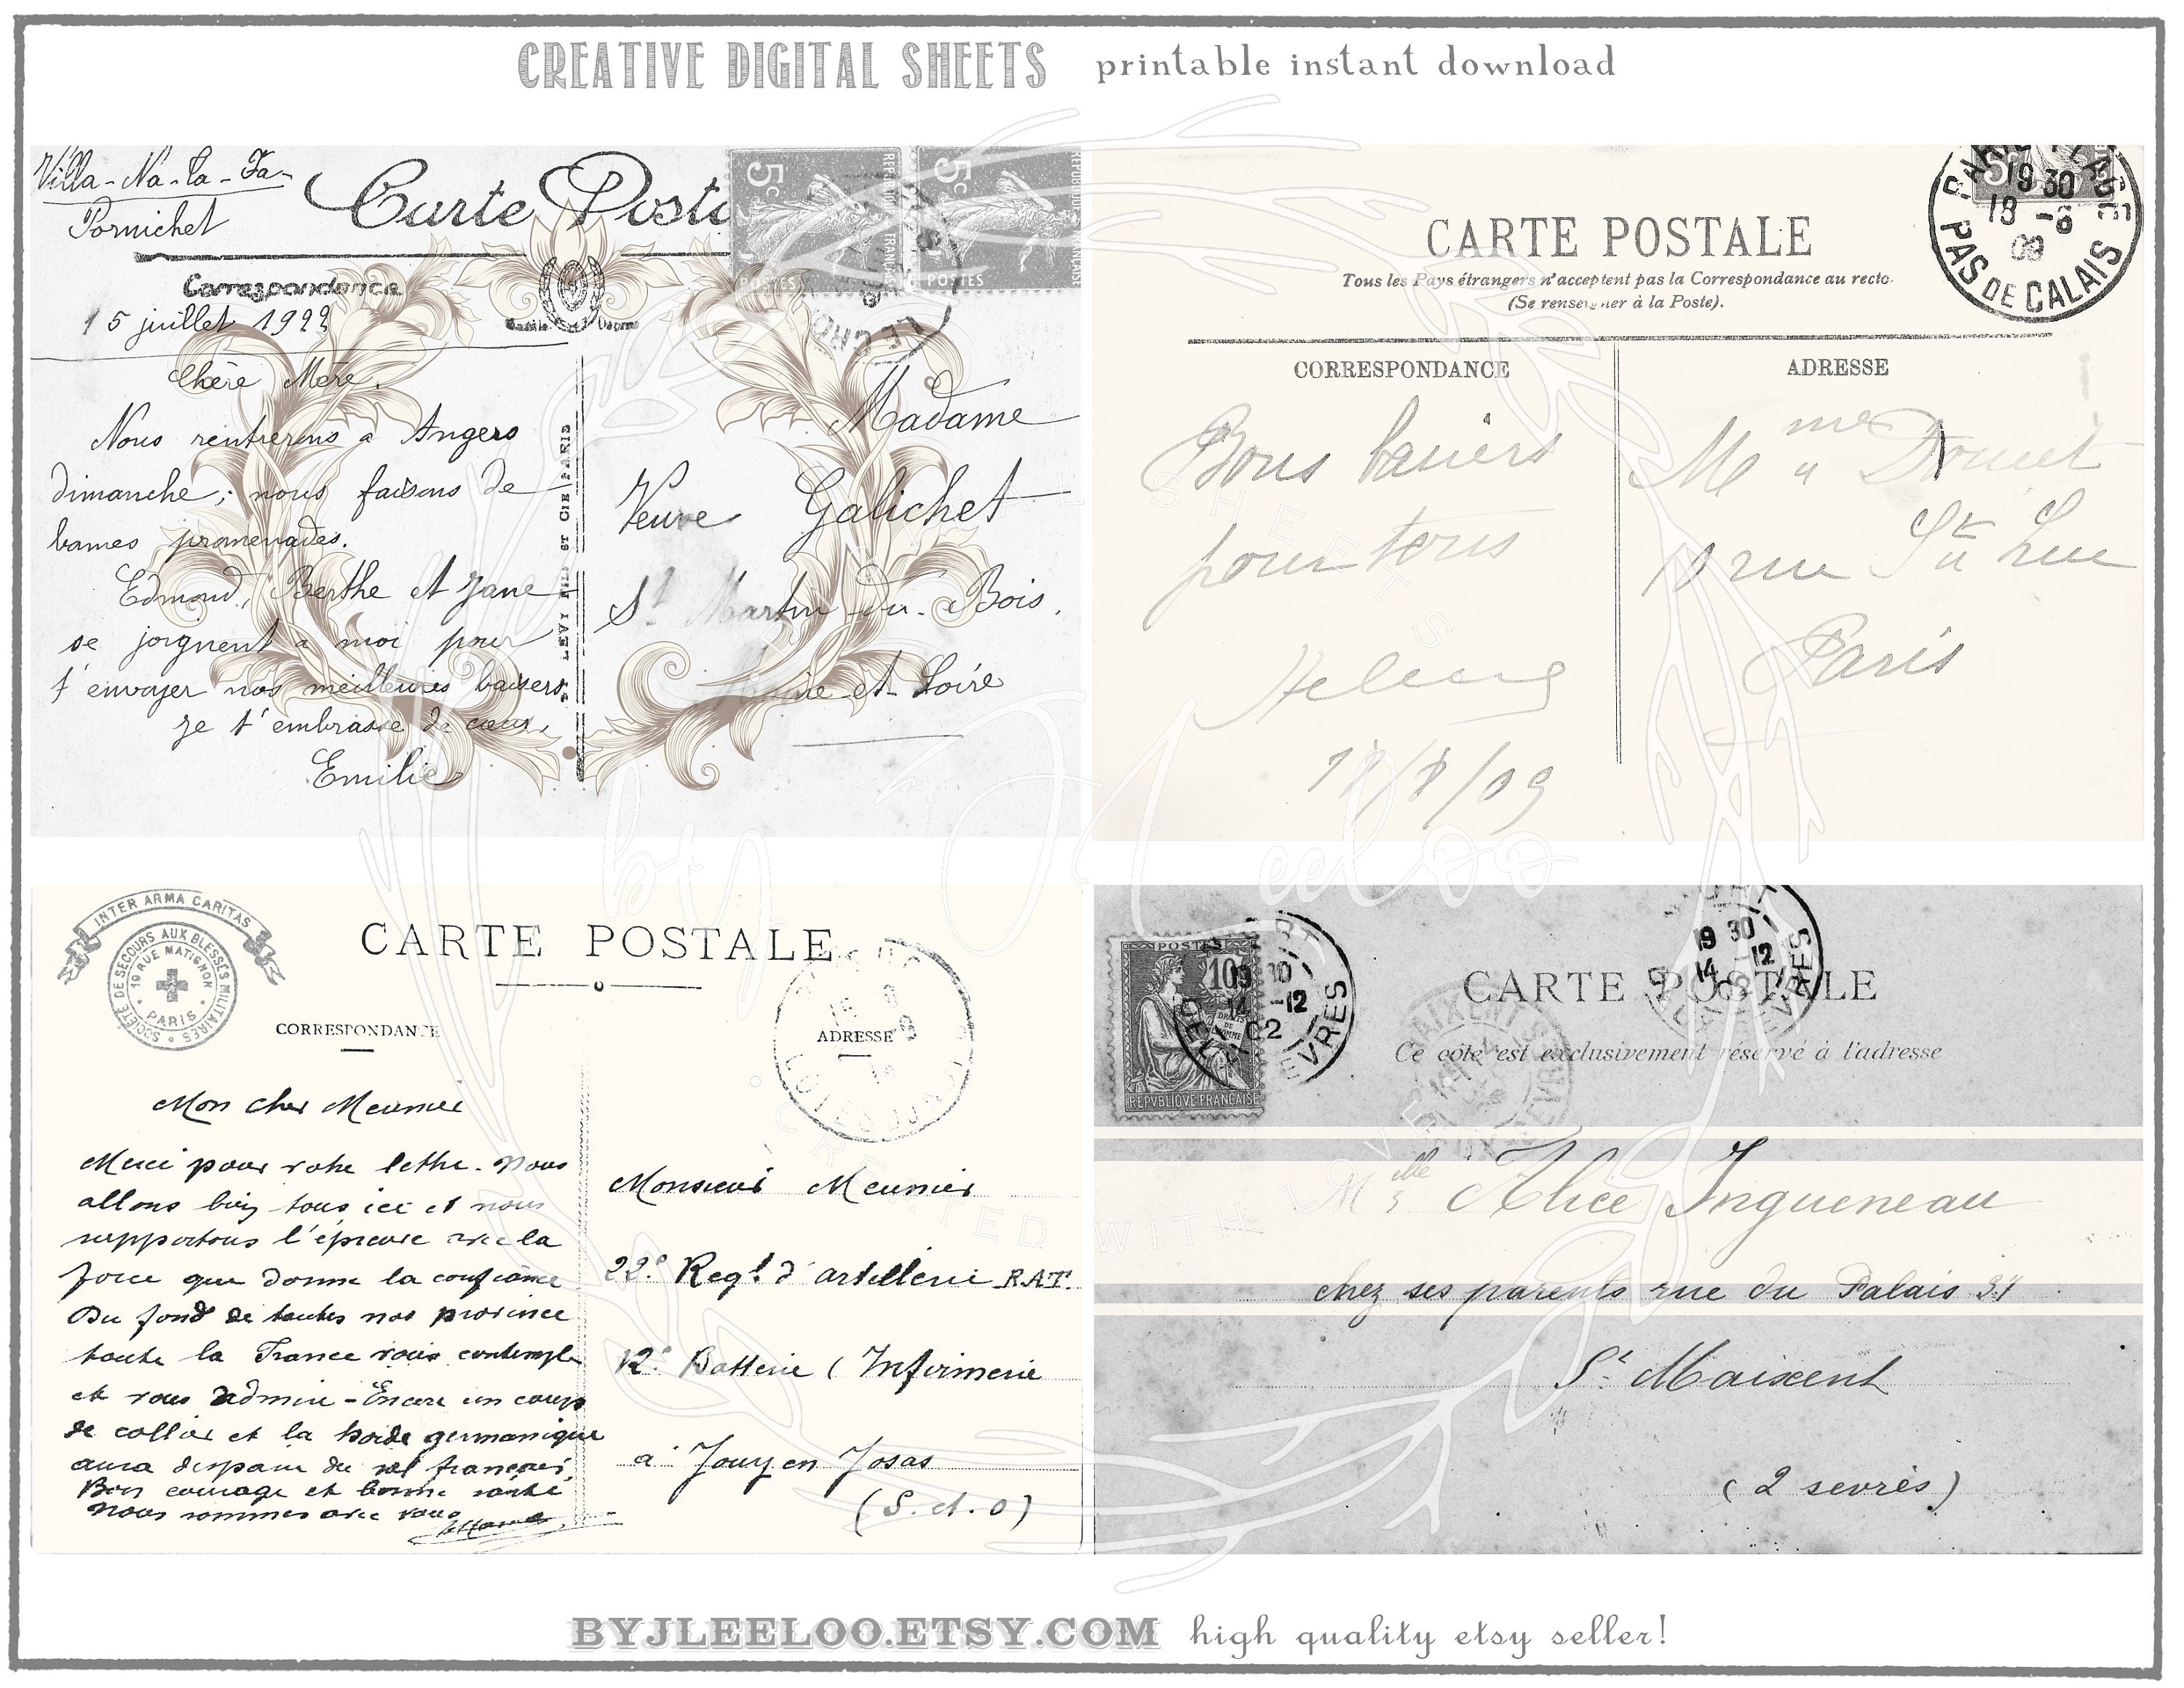 CREATIVE DIGITAL SHEETS printable instant download
Villa-Na-la-Fa-
Pornichet
Carte Posta
5c
5c
POSTES
POSTES
Correspondance
15 juillet 1922
Chère Mère,
Nous rentrerons a Angers
dimanche; nous faisons de
bames promenades.
Edmond, Berthe et Jane
se joignent a moi pour
t'envoyer nos meilleures baisers.
Je t'embrasse de cœur,
Emilie
LEVI FILS ET CIE PARIS
Madame
Veuve Galichet
St Martin-du-Bois.
Maine-et-Loire
CARTE POSTALE
Tous les Pays étrangers n'acceptent pas la Correspondance au recto.
(Se renseigner à la Poste).
19 30
18 -8
09
PAS DE CALAIS
CORRESPONDANCE
ADRESSE
Bons baisers
pour tous
18/8/09
Mme
rue Ste
Paris
by JLeeloo
INTER ARMA CARITAS
SOCIÉTÉ DE SECOURS AUX BLESSÉS MILITAIRES
19 RUE MATIGNON
PARIS
CARTE POSTALE
CORRESPONDANCE
ADRESSE
Mon cher Meunier
Merci pour votre lettre. Nous
allons bien tous ici et nous
supportons l'épreuve avec la
force que donne la confiance
Du fond de toutes nos province
toute la France vous contemple
et vous admire - Encore un coup
de collier et la horde germanique
aura disparu du sol français.
Bon courage et bonne santé
Nous sommes avec vous
Monsieur Meunier
22e Regt d'artillerie R.A.T.
12e Batterie (Infirmerie
a Jouy en Josas
(S. et. O)
POSTES
10
DROITS DE L'HOMME
REPVBLIQVE FRANÇAISE
19 30
14 -12
02
CARTE POSTALE
Ce côté est exclusivement réservé à l'adresse
Melle Alice Ingueneau
chez ses parents rue du Palais 34
St Maixent
(2 sevrès)
CREATED WITH LOVE
BYJLEELOO.ETSY.COM high quality etsy seller!